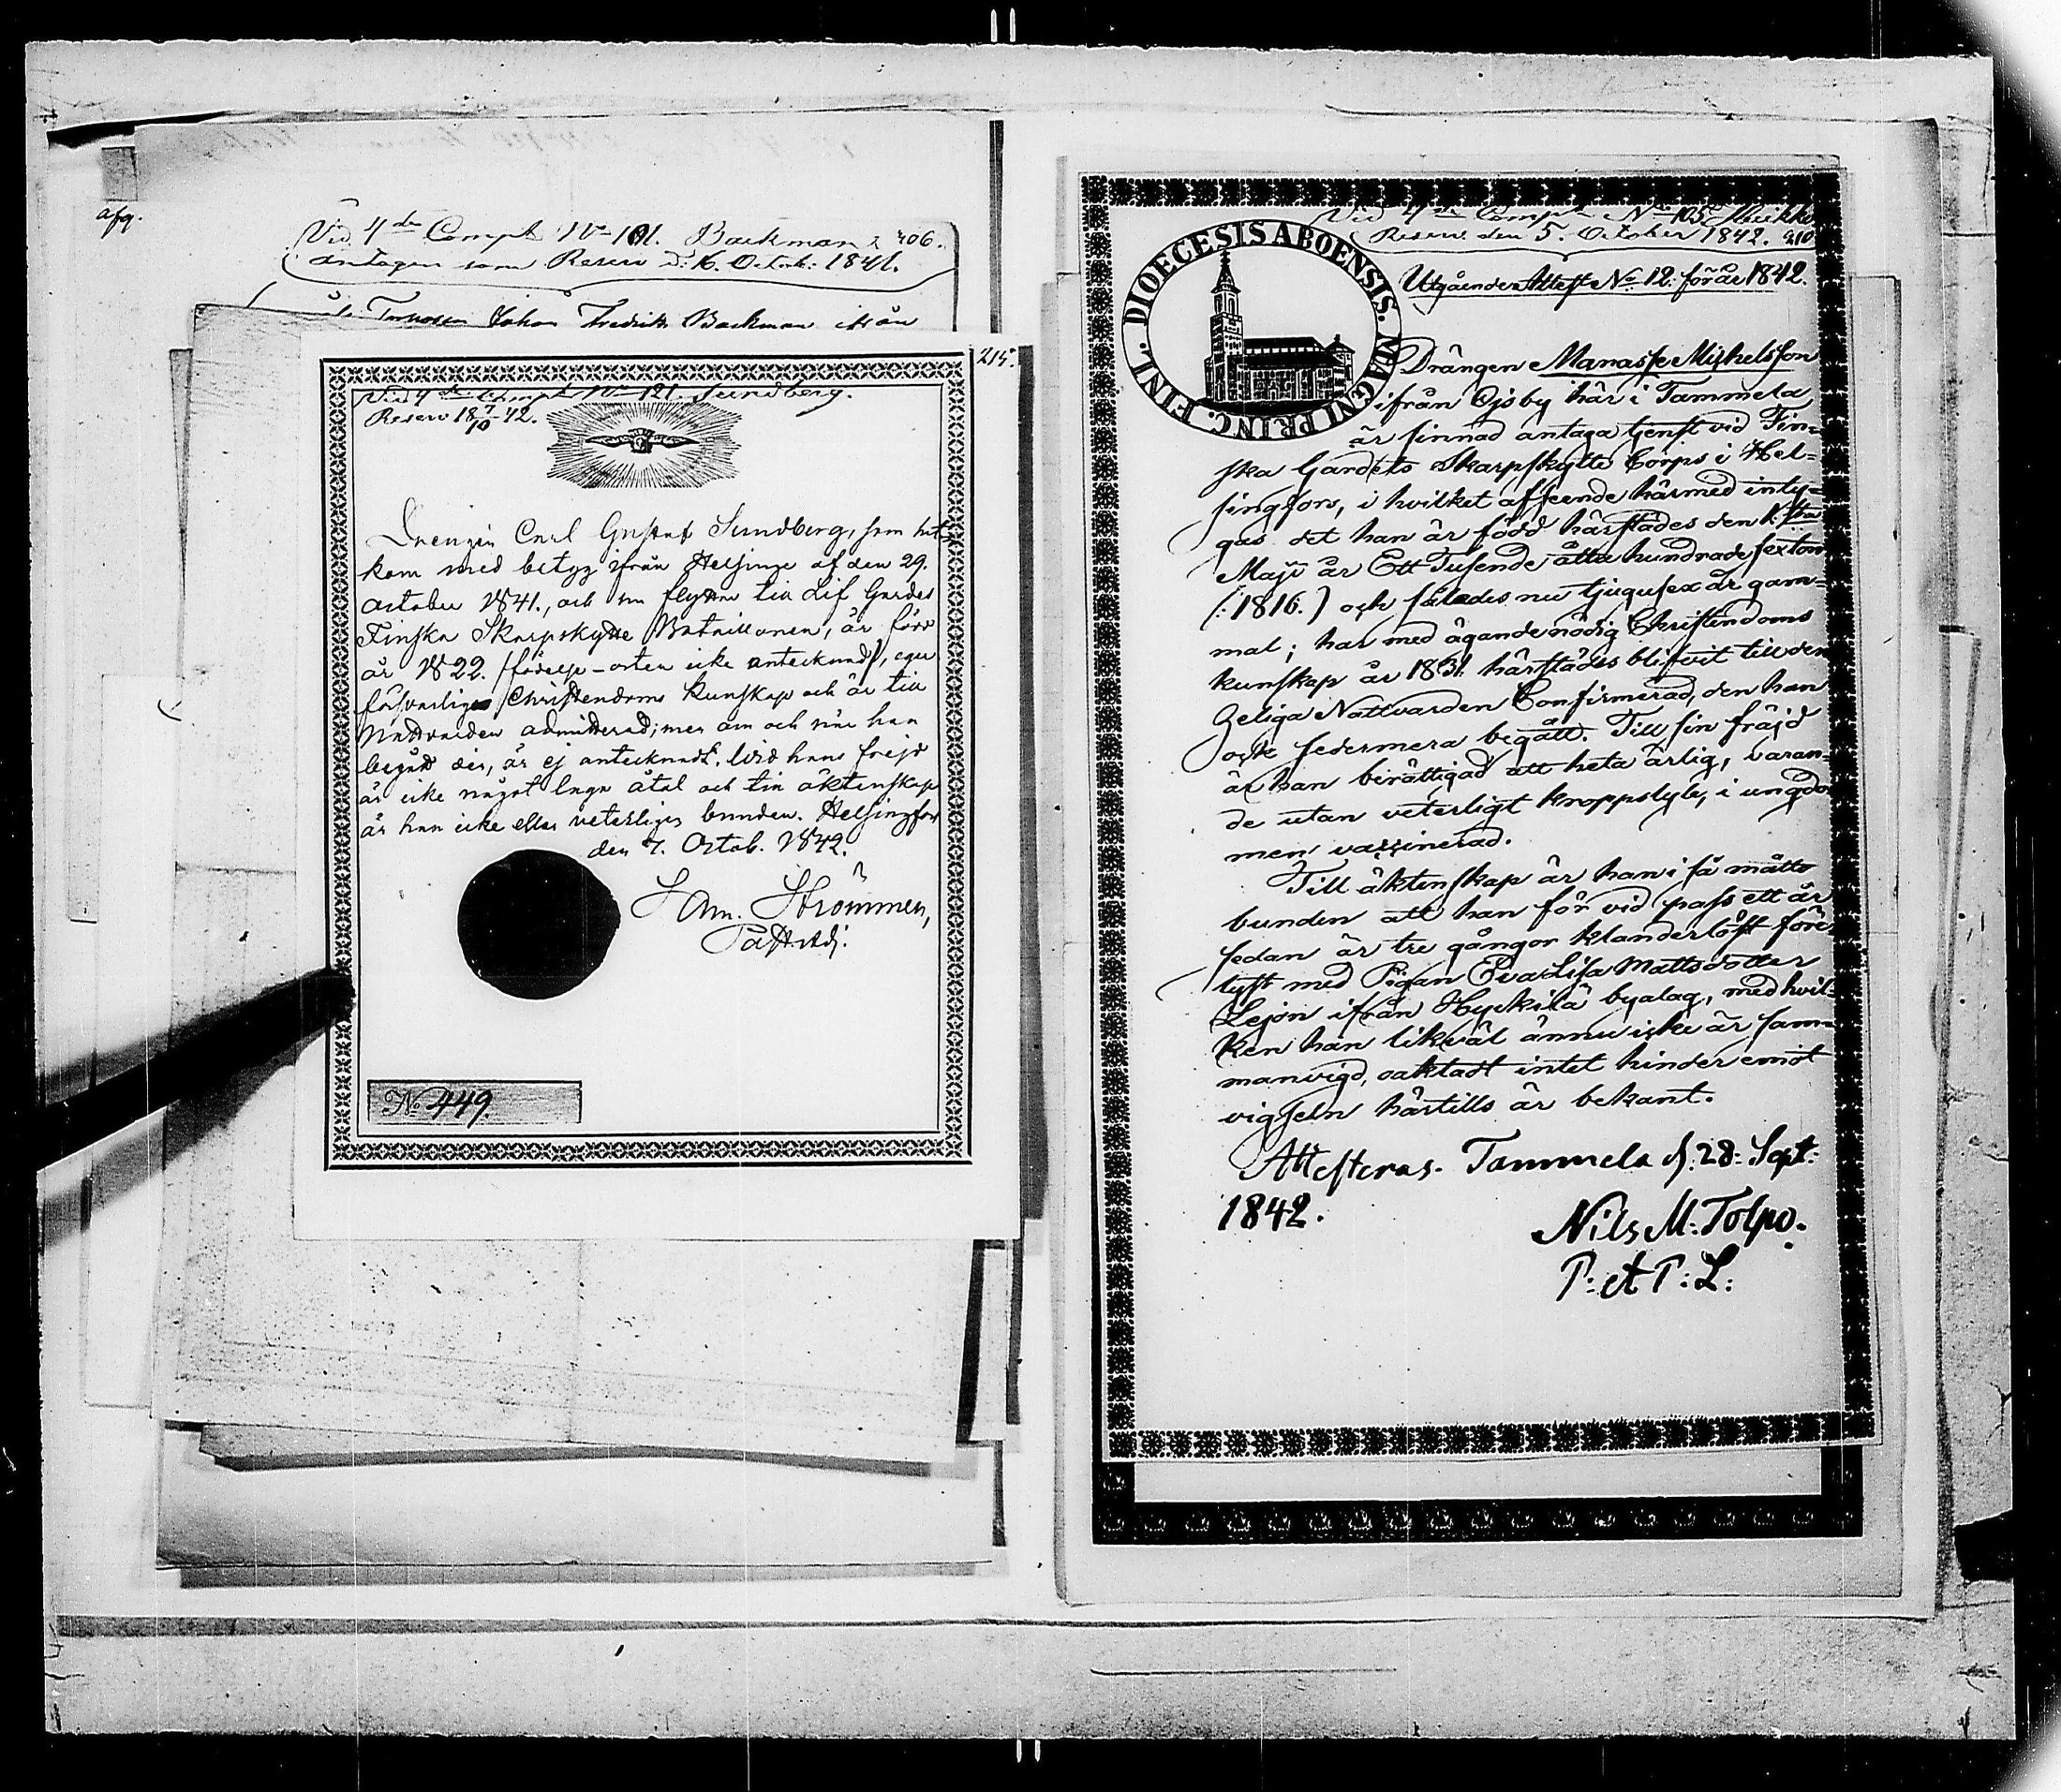 afg.
Vid 4de Comp. No 101. Backman 406.
antagen som Reserv d: 16. Octob: 1841.
Johan Fredrik Backman ifrån
215.
Vid 4de Comp. No 121. Sundberg.
Reserv 18 7/10 42.
Drengen Carl Gustaf Sundberg, som hit
kom med betyg ifrån Helsinge af den 29.
October 1841., och nu flyttar till Lif Gardes
Finska Skarpskytte Bataillonen, är född
år 1822. /födelse-orten icke antecknad/, eger
försvarlig Christendoms kunskap och är till
Nattvarden admitterad; men om och när han
begått den, är ej antecknadt. Wid hans frejd
är icke något laga åtal och till äktenskap
är han icke eller veterligen bunden. Helsingfors
den 7. Octob. 1842.
Sam. Strömmer,
Past. Adj.
No 449.
Vid 4de Comp. No 105 Meikko
Reserv den 5. October 1842. 210
DIOECESIS ABOENSIS. MAGNI PRINC. FINL.
Utgående Attest No 12. för år 1842.
Drängen Manasse Michelsson
ifrån Ojsby här i Tammela,
är sinnad antaga tjenst vid Fin-
ska Gardets Skarpskytte Corps i Hel-
singfors, i hvilket afseende härmed inty-
gas det han är född härstädes den 1:sta
Maji år Ett Tusende åtta hundrade sexton
(: 1816.) och således nu tjugusex år gam-
mal; har med ägande nödig Christendoms
kunskap år 1831. härstädes blifvit till den
Heliga Nattvarden Confirmerad, den han
ock sedermera begått. Till sin fräjd
är han berättigad att heta ärlig, varan-
de utan veterligt kroppslyte, i ungdo-
men vaccinerad.
Till äktenskap är han i så måtto
bunden att han för vid pass ett år
sedan är tre gångor klanderlöst före-
lyst med Pigan Eva Lisa Mattsdotter
Lejon ifrån Hyckilä byalag, med hvil-
ken han likväl ännu icke är sam-
manvigd, oaktadt intet hinder emot
vigseln härtills är bekant.
Attesteras. Tammela d: 28: Sept:
1842.
Nils M. Tolpo.
P: et P: L: